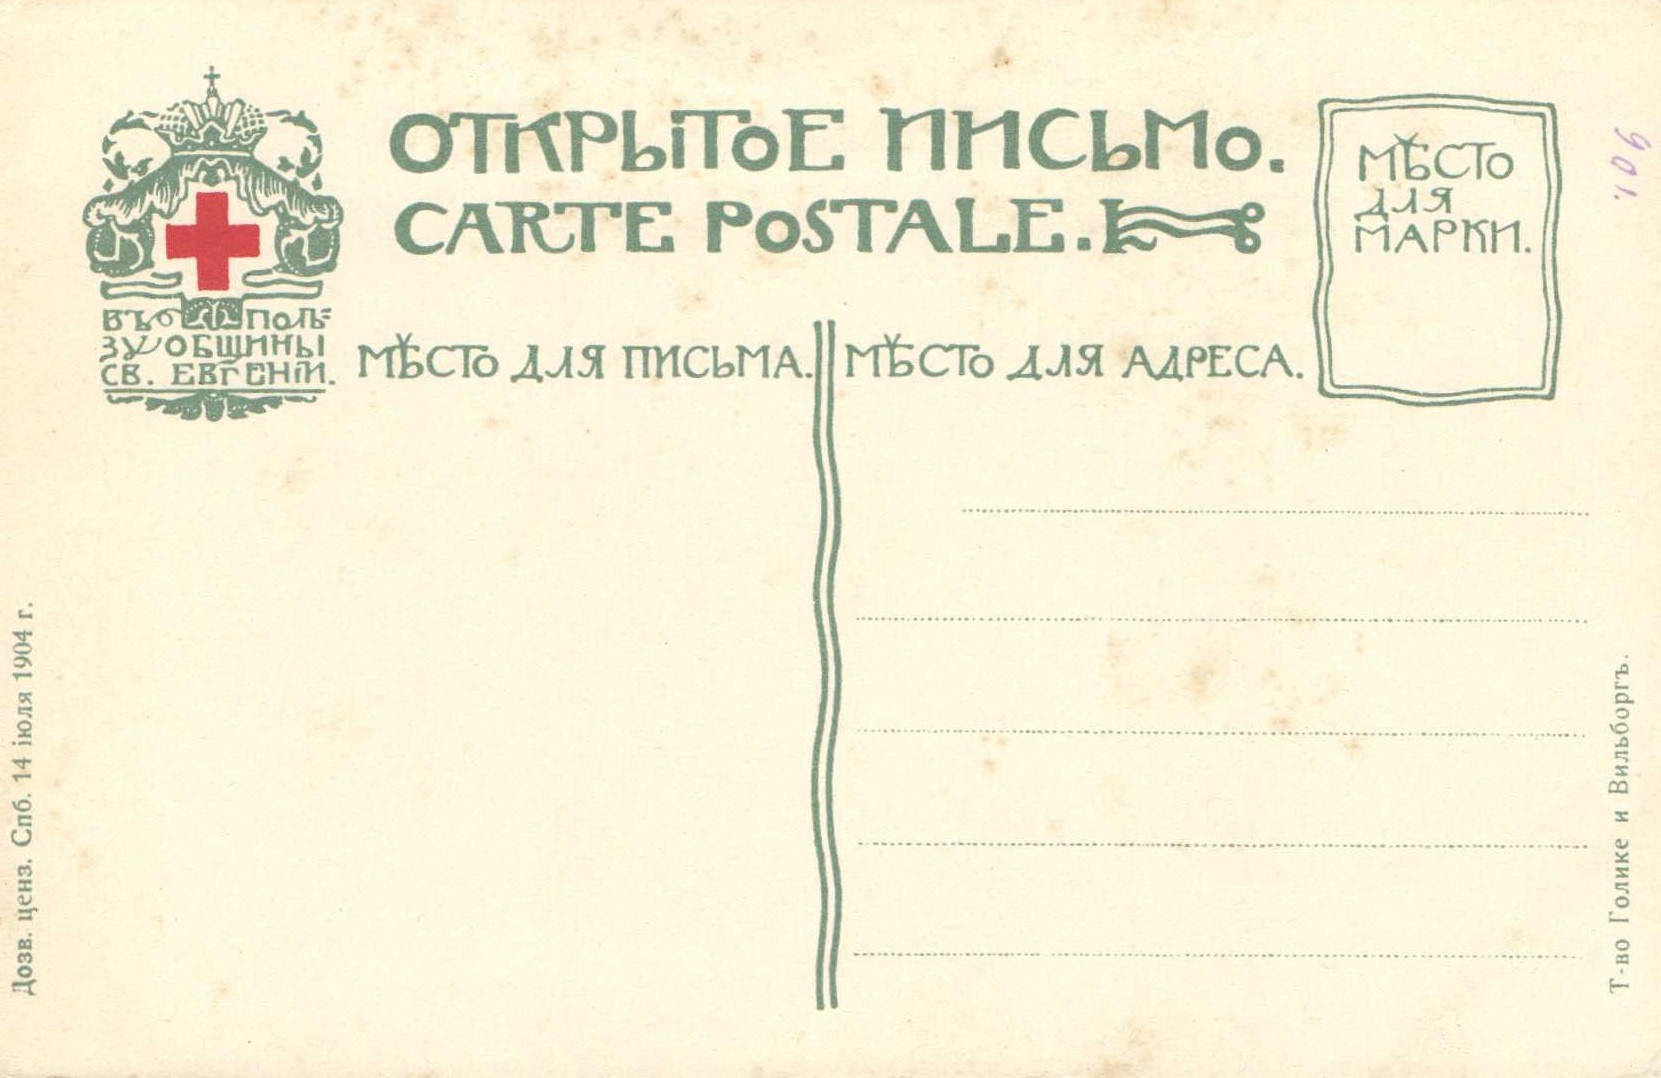 ОТКРЫТОЕ ПИСЬМО.
CARTE POSTALE.
МѢСТО
ДЛЯ
МАРКИ.
ВЪ ПОЛЬ=
ЗУ ОБЩИНЫ
СВ. ЕВГЕНІИ.
МѢСТО ДЛЯ ПИСЬМА.
МѢСТО ДЛЯ АДРЕСА.
Дозв. ценз. Спб. 14 іюля 1904 г.
Т-во Голике и Вильборгъ.